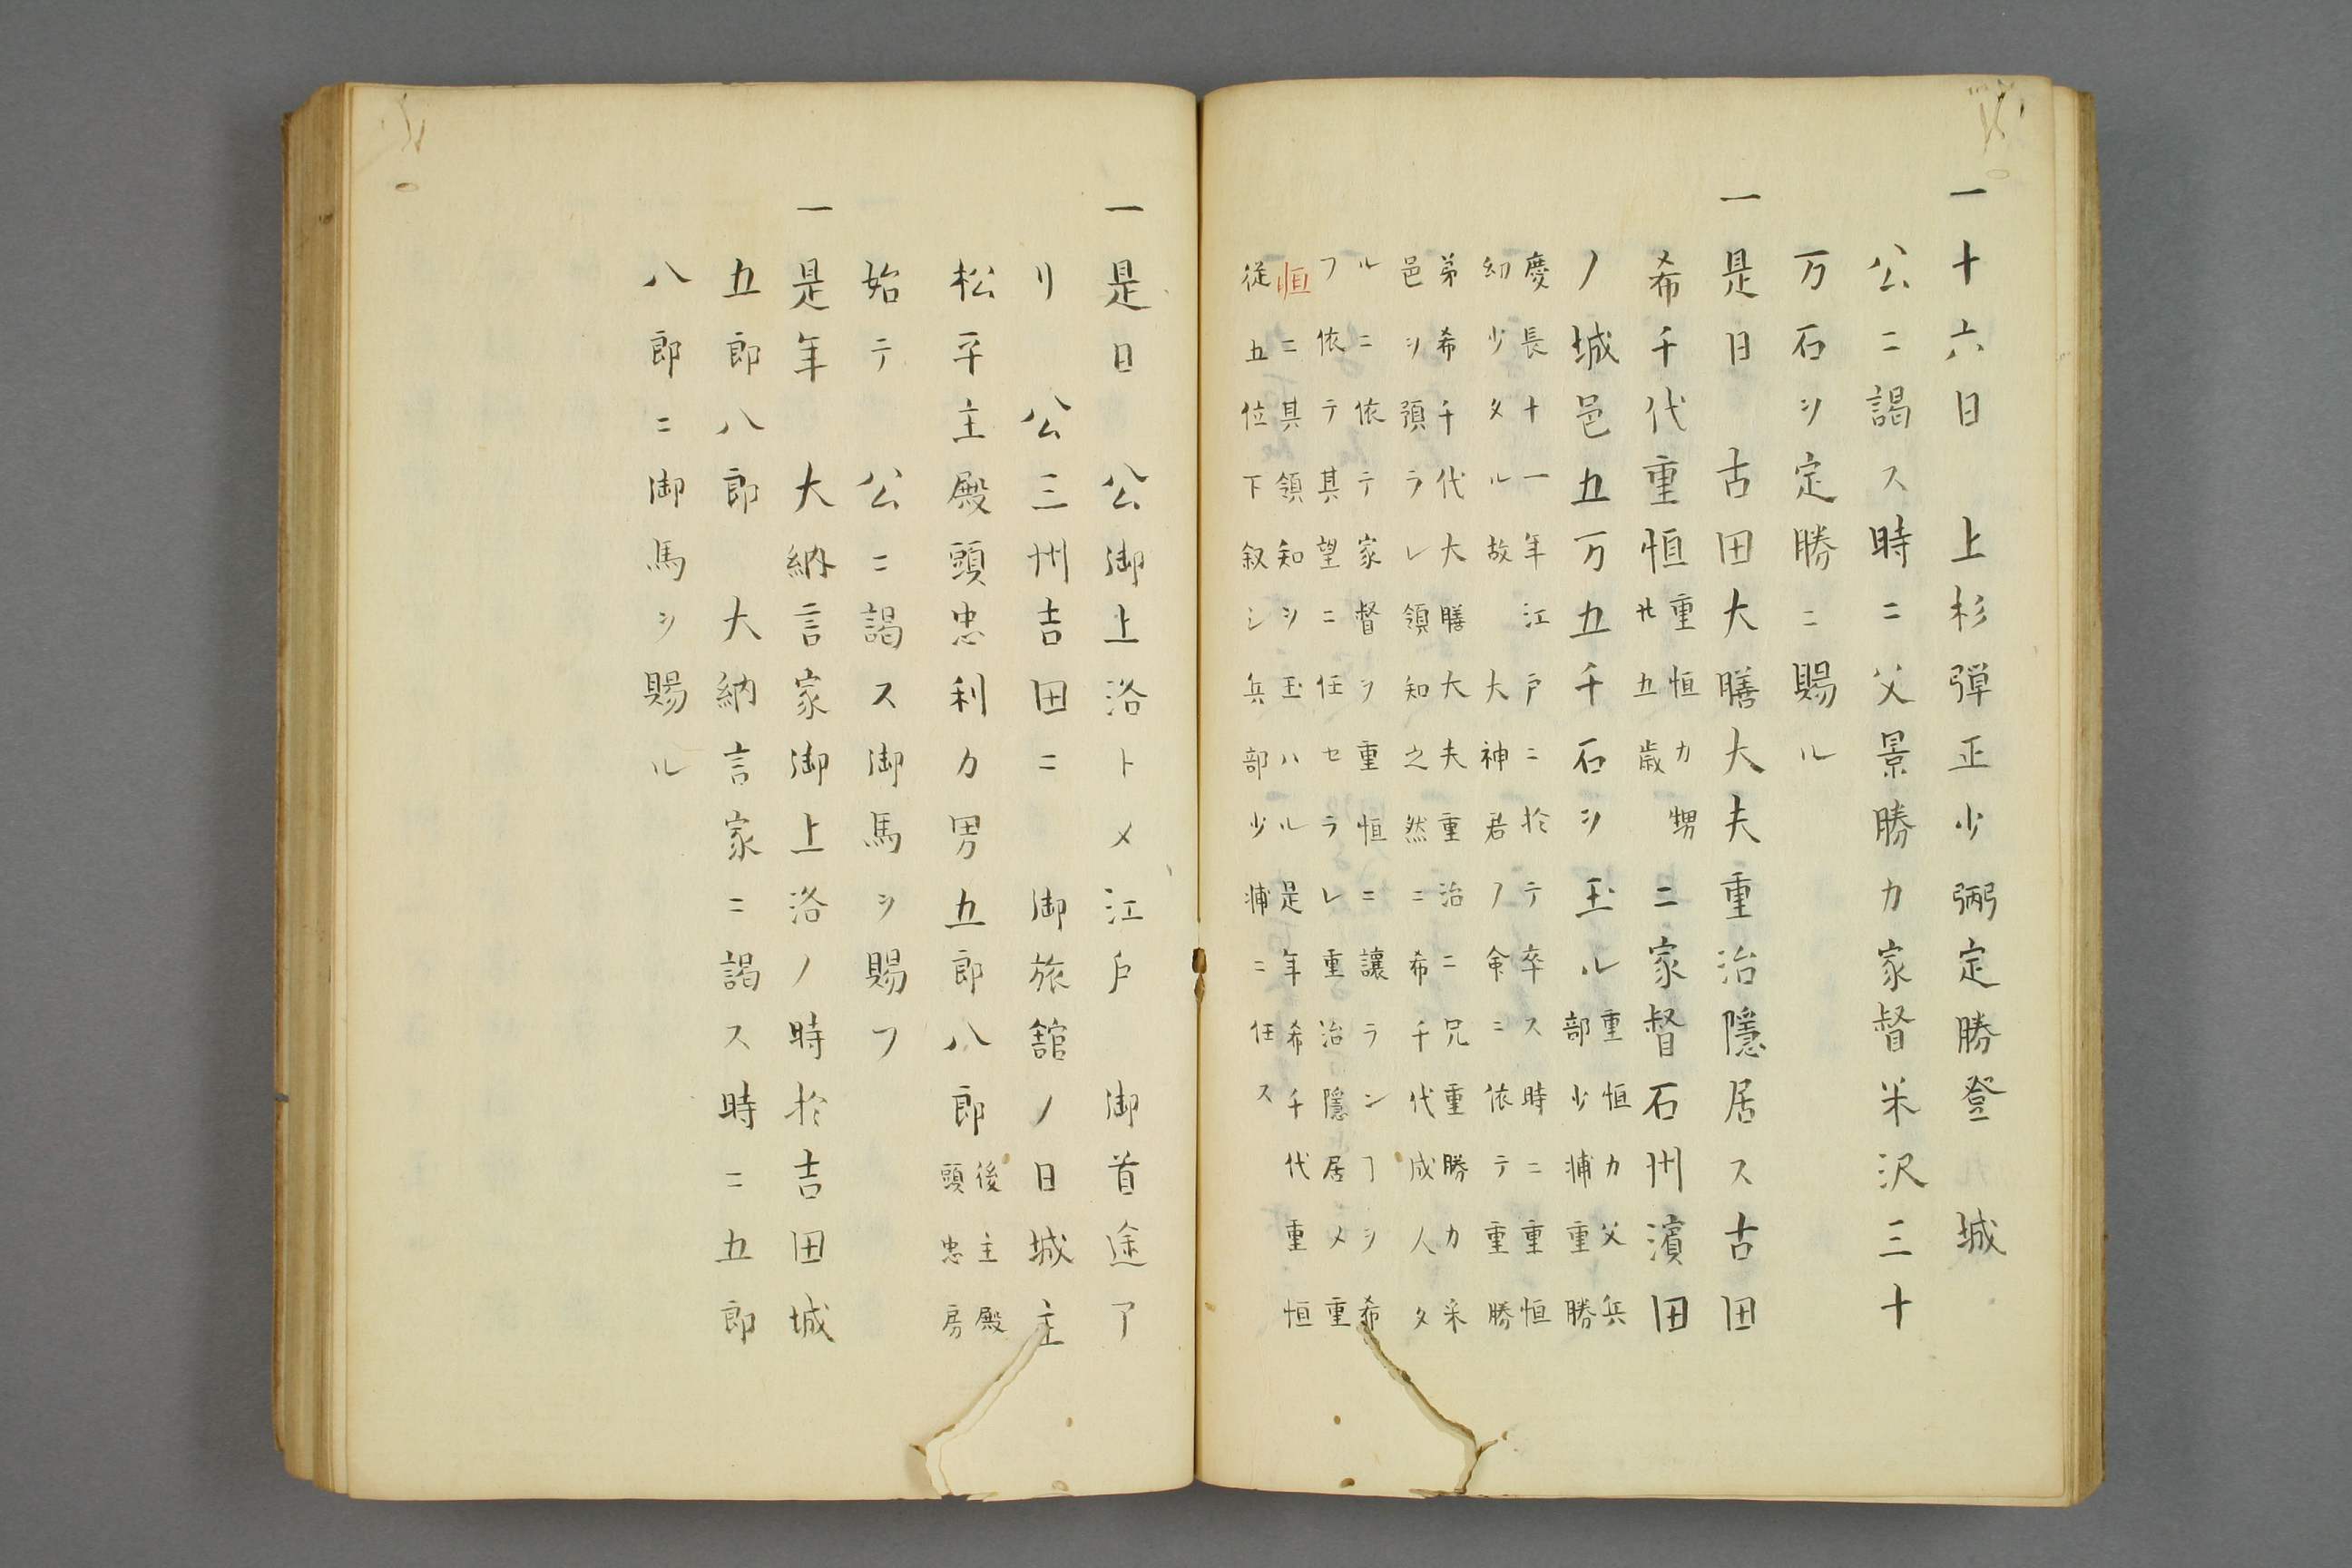 一十六日　上杉弾正少弼定勝登　城
公ニ謁ス時ニ父景勝カ家督米沢三十
万石ヲ定勝ニ賜ル
一是日　古田大膳大夫重治隠居ス古田
希千代重恒
重恒カ甥
廿五歳
ニ家督石州濱田
ノ城邑五万五千石ヲ玉ル
重恒カ父兵
部少浦重勝
慶長十一年江戸ニ於テ卒ス時ニ重恒
幼少タル故　大神君ノ命ニ依テ重勝
弟希千代大膳大夫重治ニ兄重勝カ采
邑ヲ預ラレ領知之然ニ希千代成人タ
ルニ依テ家督ヲ重恒ニ讓ランヿヲ希
フ依テ其望ニ任セラレ重治隠居メ重
恒ニ其領知ヲ玉ハル是年希千代重恒
従五位下叙シ兵部少浦ニ任ス
一是日　公御上洛トメ江戸　御首途了
リ　公三州吉田ニ　御旅舘ノ日城主
松平主殿頭忠利カ男五郎八郎
後主殿
頭忠房
始テ　公ニ謁ス御馬ヲ賜フ
一是年　大納言家御上洛ノ時於吉田城
五郎八郎　大納言家ニ謁ス時ニ五郎
八郎ニ御馬ヲ賜ル